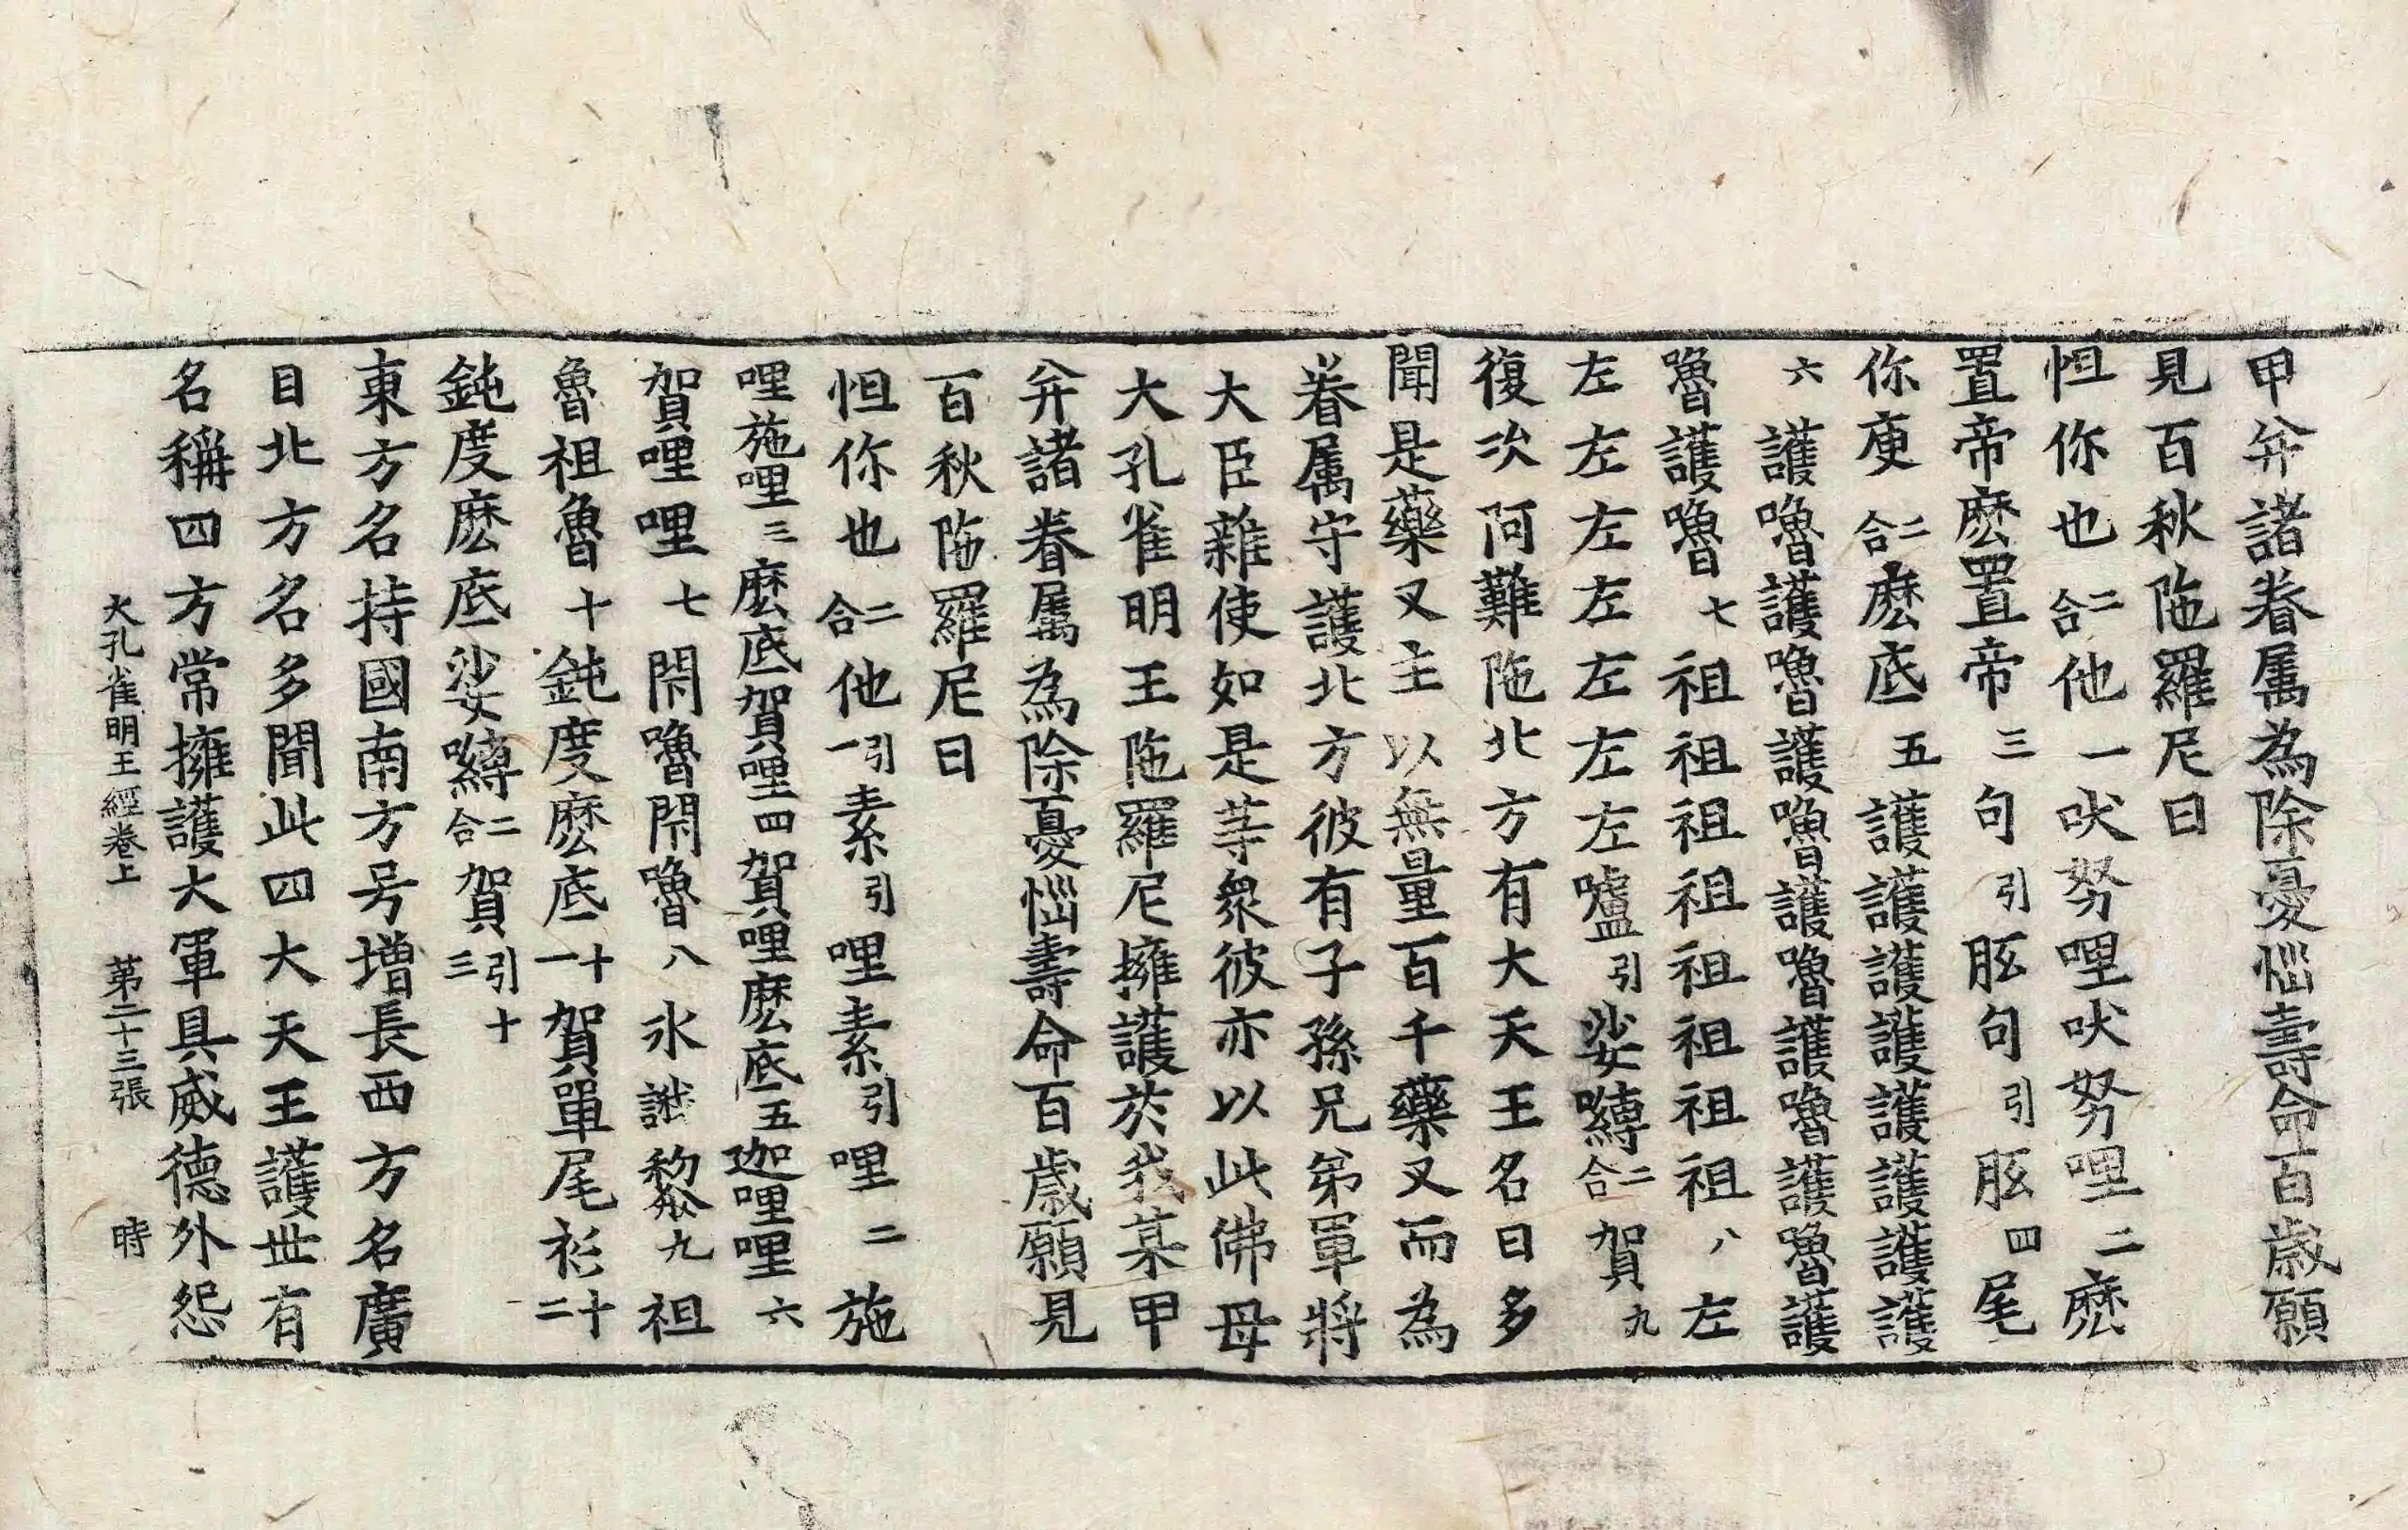 甲并諸眷属為除憂惱壽命百歳願
見百秋陁羅尼曰
怛你也二合他一吠努哩吠努哩二麽
置帝麽置帝三句引胘句引胘四尾
你庾二合麽底五護護護護護護護護
六護嚕護嚕護嚕護嚕護嚕護嚕護
嚕護嚕七祖祖祖祖祖祖祖祖八左
左左左左左左左嚧引娑嚩二合賀九
復次阿難陁北方有大天王名曰多
聞是藥叉主以無量百千藥叉而為
眷属守護北方彼有子孫兄弟軍將
大臣雜使如是䓁衆彼亦以此佛母
大孔雀明王陁羅尼擁護於我某甲
并諸眷属為除憂惱壽命百歳願見
百秋陁羅尼曰
怛你也二合他引一素引哩素引哩二施
哩施哩三麽底賀哩四賀哩麽底五迦哩哩六
賀哩哩七閇嚕閇嚕八氷誐黎九祖
魯祖魯十鈍度麽底十一賀單尾衫十二
鈍度麽底娑嚩二合賀引十三
東方名持國南方号增長西方名廣
目北方名多聞此四大天王護世有
名稱四方常擁護大軍具威德外怨
大孔雀明王經卷上　第二十三張　時